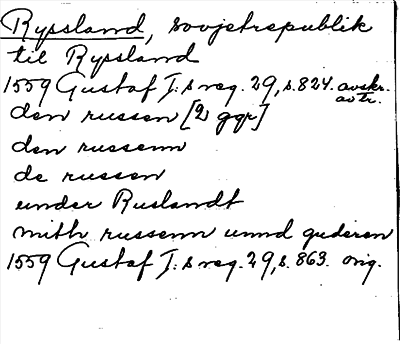 Ryssland, sovjetrepublik
til Ryssland
1559 Gustaf I:s reg. 29, s. 824. avskr.
avtr.
den russen [2 ggr]
den russenn
de russen
under Ruslandt
mith russenn unnd guderen
1559 Gustaf I:s reg. 29, s. 863. orig.